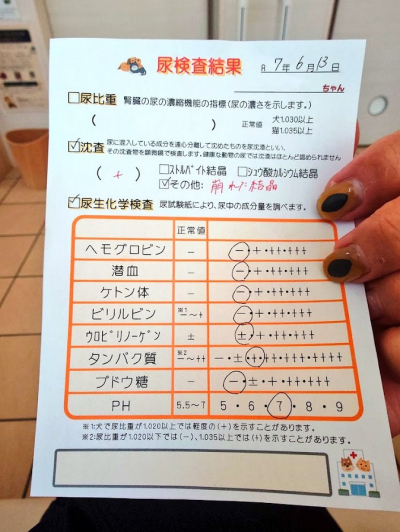 尿検査結果
R 7年6月13日
ちゃん
尿比重 腎臓の尿の濃縮機能の指標(尿の濃さを示します。)
( ) 正常値 犬1.030以上
猫1.035以上
沈査 尿に混入している成分を遠心分離して沈めたものを尿沈渣といい、
その沈査物を顕微鏡で検査します。健康な動物の尿では沈渣はほとんど認められません
( + ) ストルバイト結晶 シュウ酸カルシウム結晶
その他: 崩れた結晶
尿生化学検査 尿試験紙により、尿中の成分量を調べます。
正常値
ヘモグロビン − −・+・++・+++
潜血 − −・+・++・+++
ケトン体 − −・+・++・+++
ビリルビン ※1 −〜+ −・+・++・+++
ウロビリノーゲン ± ±・+・++・+++
タンパク質 ※2 −〜++ −・±・+・++・+++
ブドウ糖 − −・±・+・++・+++
PH 5.5〜7 5・6・7・8・9
※1:犬で尿比重が1.020以上では軽度の(+)を示すことがあります。
※2:尿比重が1.020以下では(−)、1.035以上では(+)を示すことがあります。